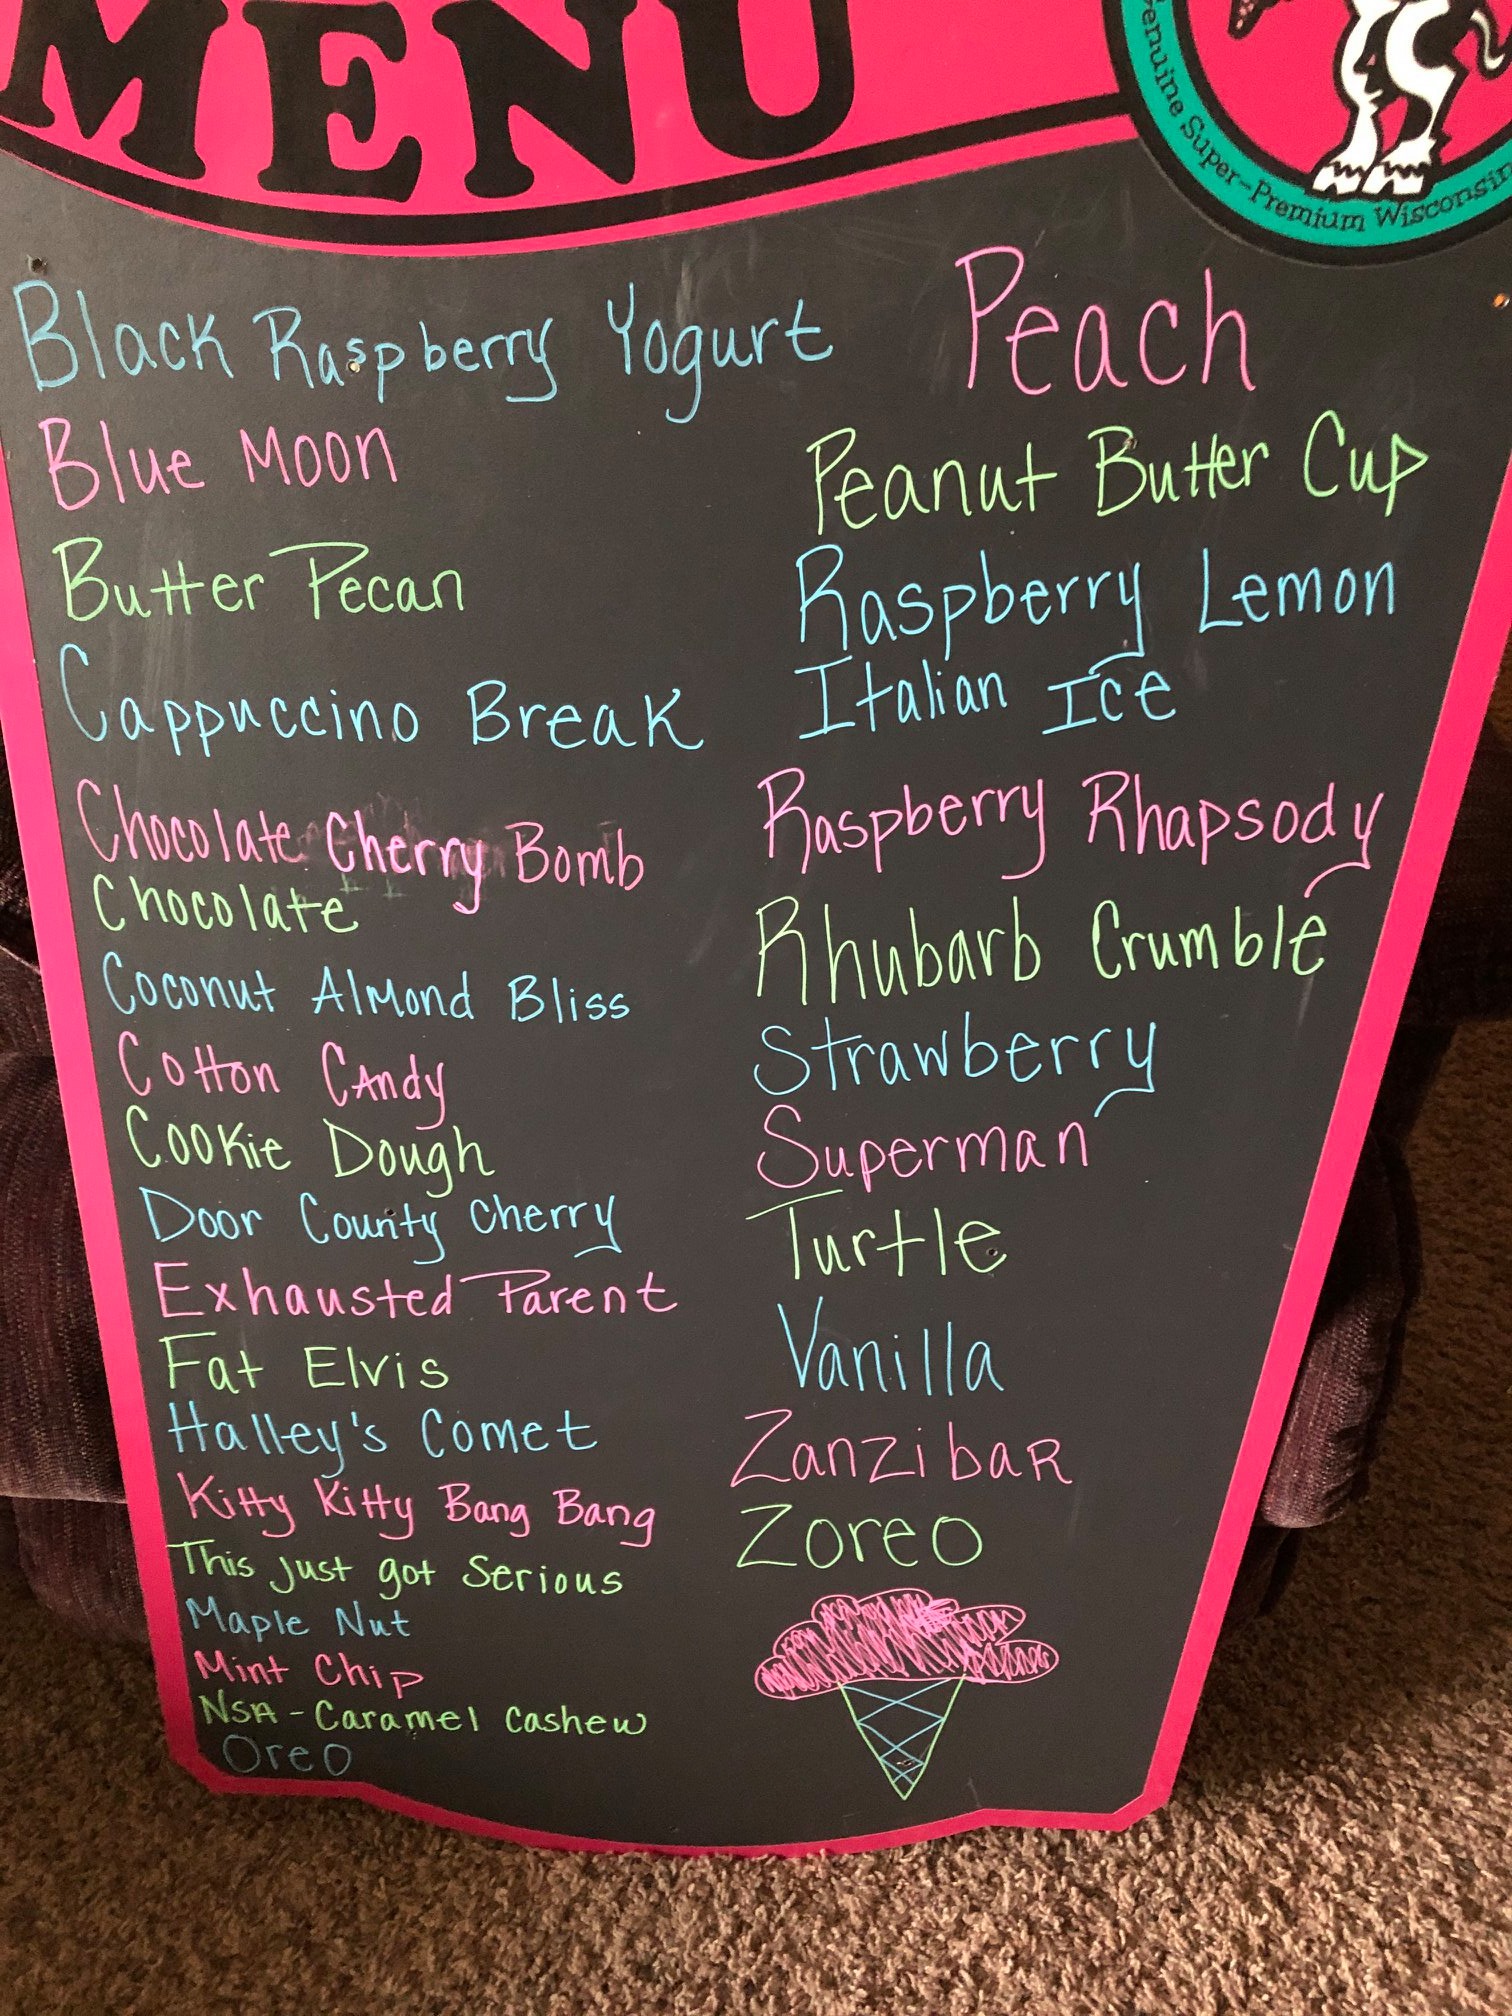 MENU
Genuine Super-Premium Wisconsin
Black Raspberry Yogurt
Blue Moon
Butter Pecan
Cappuccino Break
Chocolate Cherry Bomb
Chocolate
Coconut Almond Bliss
Cotton Candy
Cookie Dough
Door County Cherry
Exhausted Parent
Fat Elvis
Halley's Comet
Kitty Kitty Bang Bang
This just got Serious
Maple Nut
Mint Chip
NSA - Caramel Cashew
Oreo
Peach
Peanut Butter Cup
Raspberry Lemon
Italian Ice
Raspberry Rhapsody
Rhubarb Crumble
Strawberry
Superman
Turtle
Vanilla
Zanzibar
Zoreo